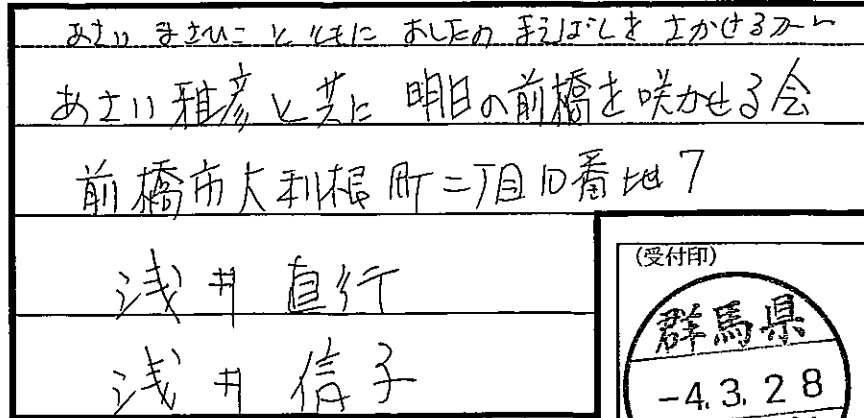 あさい まさひこ と ともに あしたの まえばしを さかせるかい
あさい雅彦と共に 明日の前橋を咲かせる会
前橋市大利根町二丁目10番地7
浅井 直行
浅井 信子
(受付印)
群馬県
-4.3.28